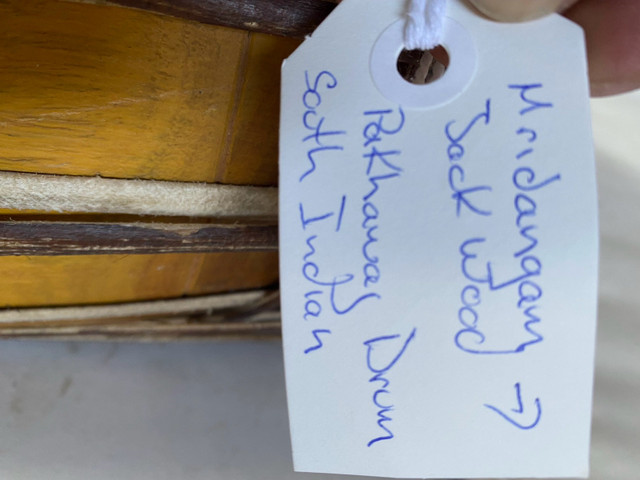 Mridangam →
Jack Wood
Pakhawaj Drum
South Indian